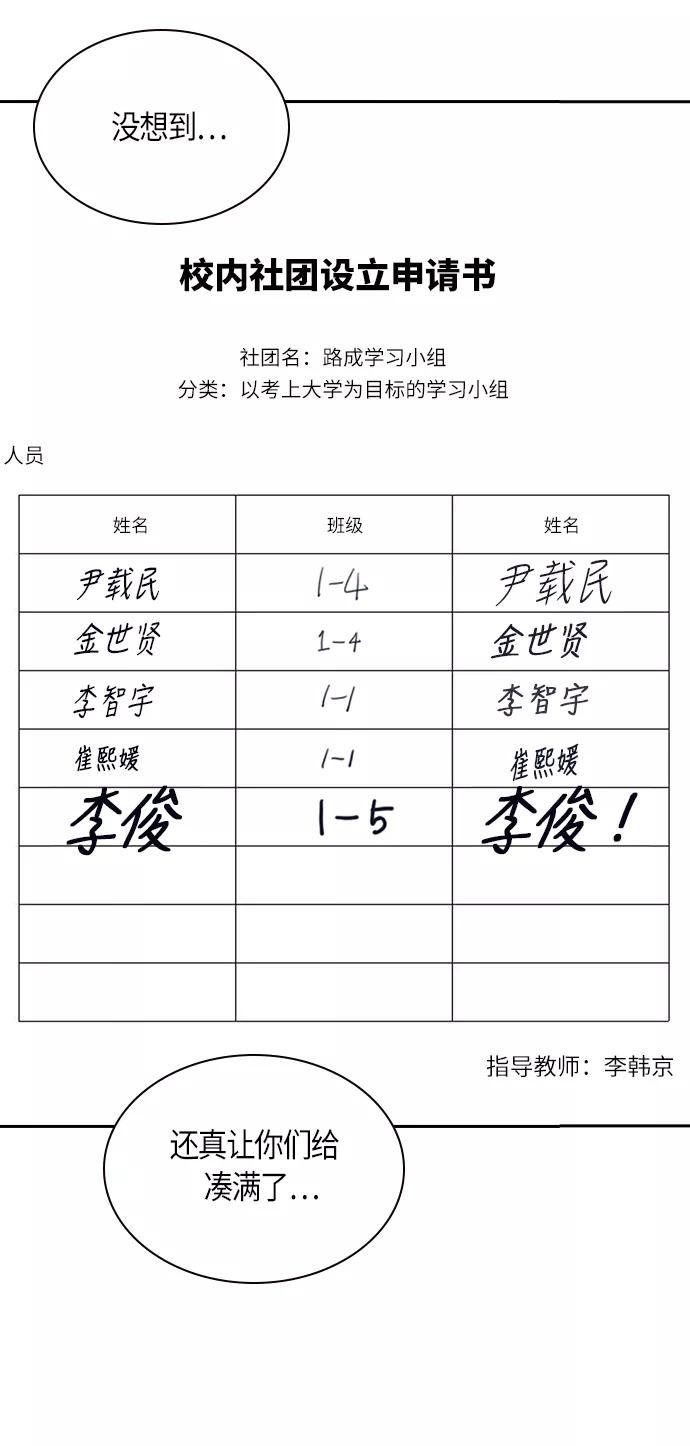 没想到...
校内社团设立申请书
社团名：路成学习小组
分类：以考上大学为目标的学习小组
人员
姓名 班级 姓名
尹载民 1-4 尹载民
金世贤 1-4 金世贤
李智宇 1-1 李智宇
崔熙媛 1-1 崔熙媛
李俊 1-5 李俊！
指导教师：李韩京
还真让你们给
凑满了...